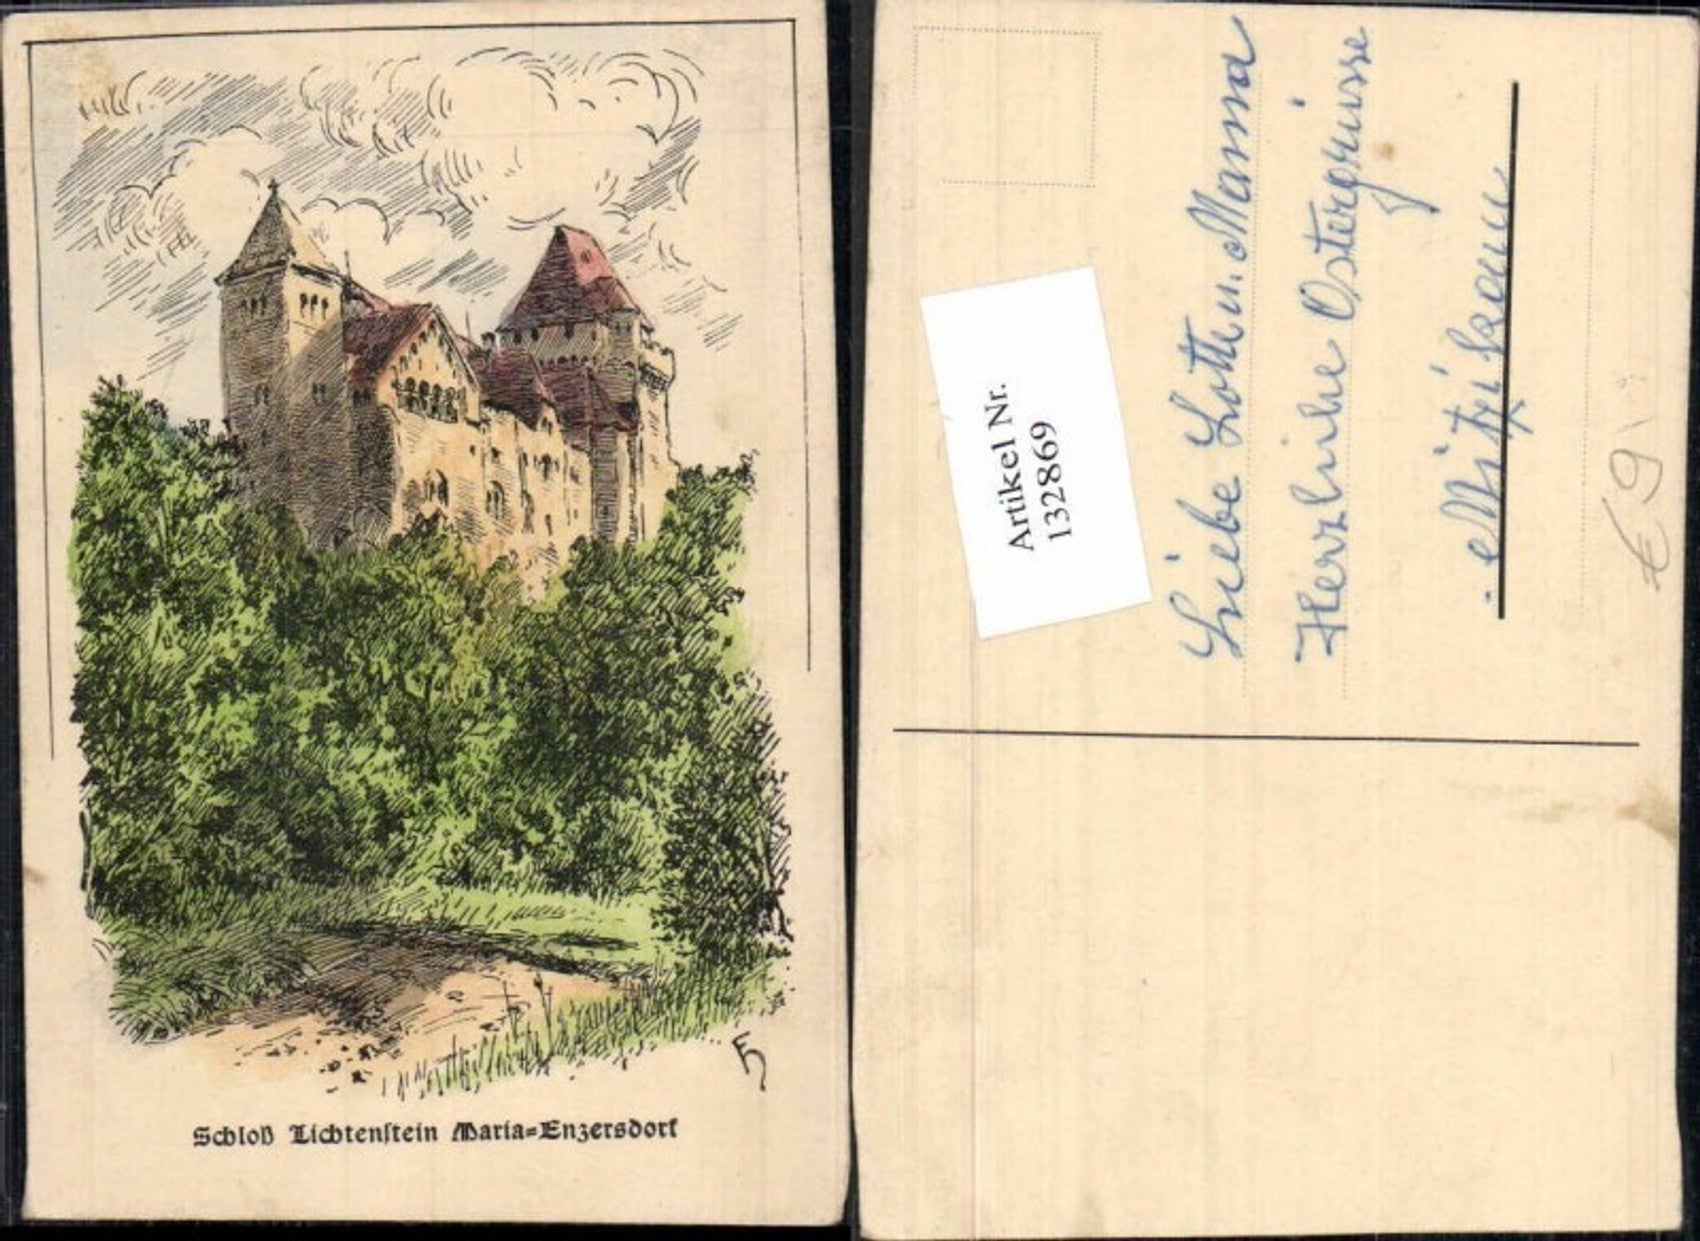 Schloß Lichtenstein Maria=Enzersdorf
Artikel Nr.
132869
Liebe Lotte u. Mama
Herzliche Ostergrüsse
Mitzi
€ 9,-